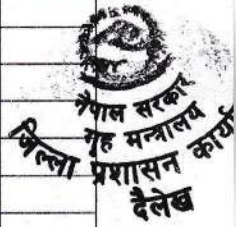 नेपाल सरकार
गृह मन्त्रालय
जिल्ला प्रशासन कार्या
दैलेख